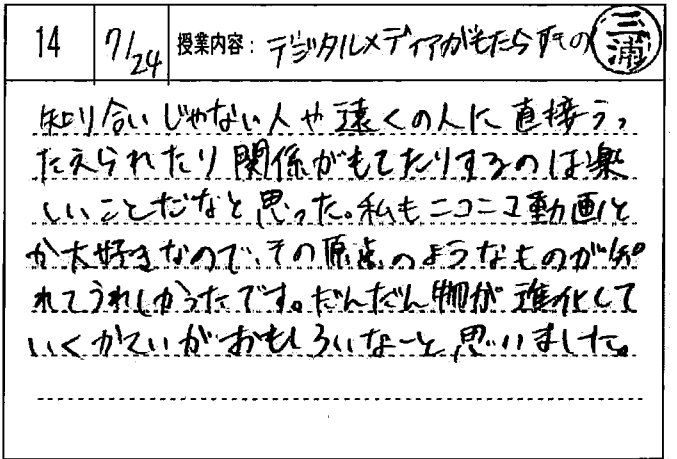 14 7/24 授業内容：デジタルメディアがもたらすもの 三浦
知り合いじゃない人や遠くの人に直接うっ
たえられたり関係がもてたりするのは楽
しいことだなと思った。私もニコニコ動画と
か大好きなので、その原点のようなものが知
れてうれしかったです。だんだん物が進化して
いくかていがおもしろいなーと思いました。